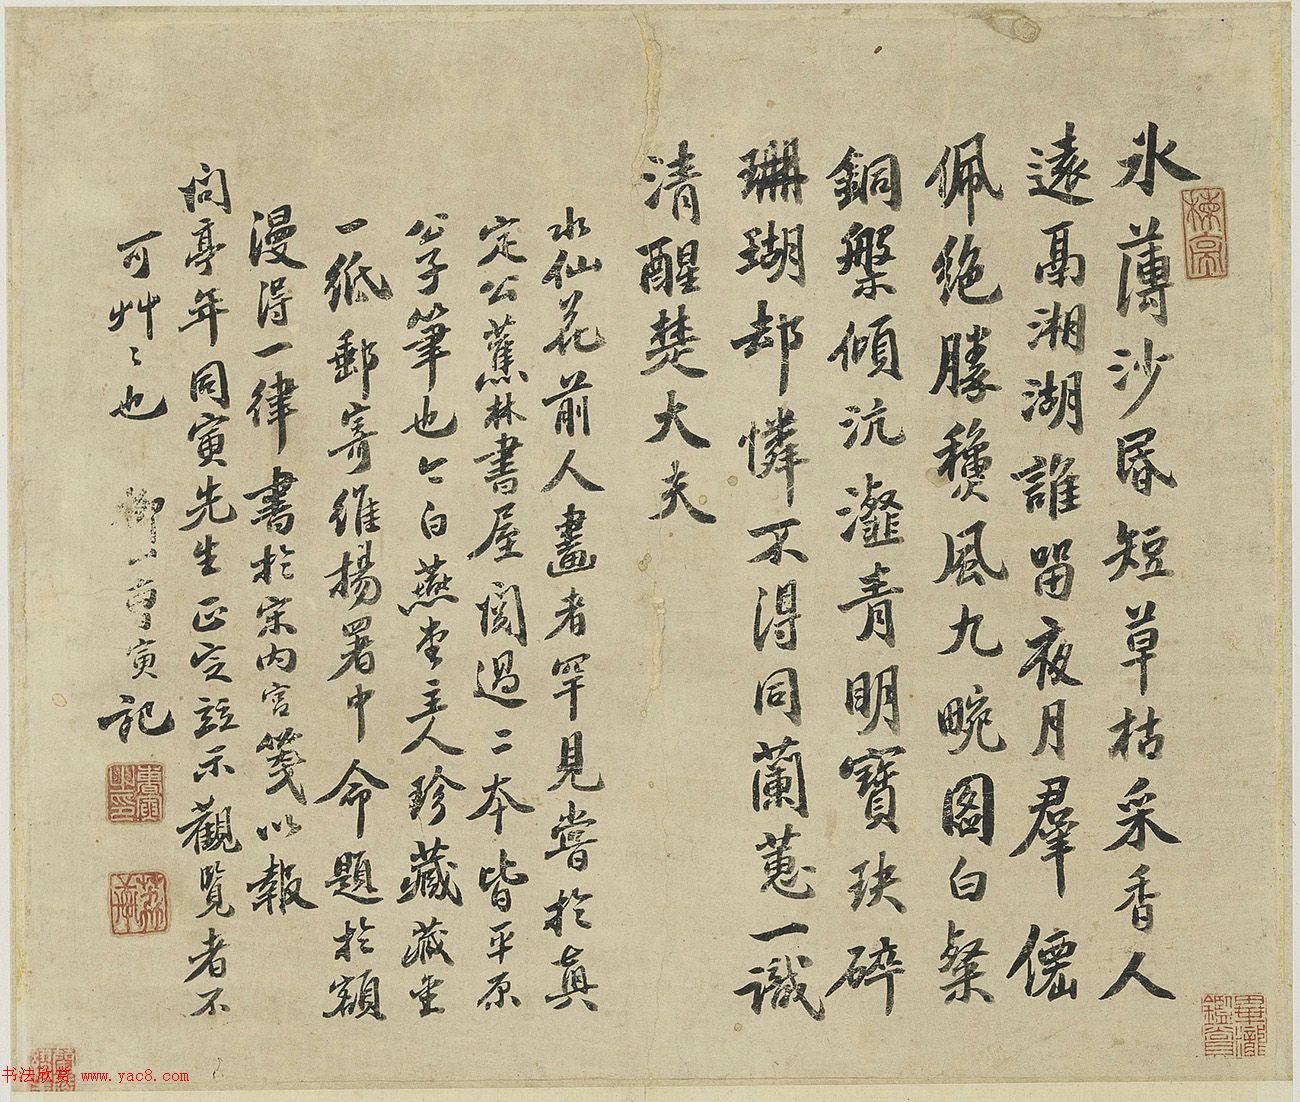 氷薄沙昏短草枯采香人
遠鬲湘湖誰留夜月羣僊
佩絶勝穐風九畹圖白粲
銅槃傾沆瀣青明寶玦碎
珊瑚却憐不得同蘭蕙一識
清醒楚大夫
水仙花前人畫者罕見嘗於真
定公蕉林書屋閱過二本皆平原
公子筆也今白燕堂主人珍藏藏堂
一紙郵寄維揚署中命題於額
漫得一律書於宋内宫箋以報
問亭年同寅先生正定並示觀覽者不
可艸〻也 柳 曹寅記
楝亭
畢瀧鑑賞
书法欣赏 www.yac8.com